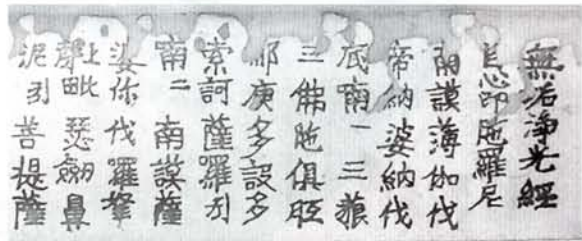 無垢淨光經
自心印陁羅尼
南謨薄伽伐
帝納婆納伐
底喃一三藐
三佛陁俱胝
那庾多設多
索訶薩羅引
喃二南謨薩
婆你伐羅拏
上聲毗瑟劒鼻
泥引菩提薩